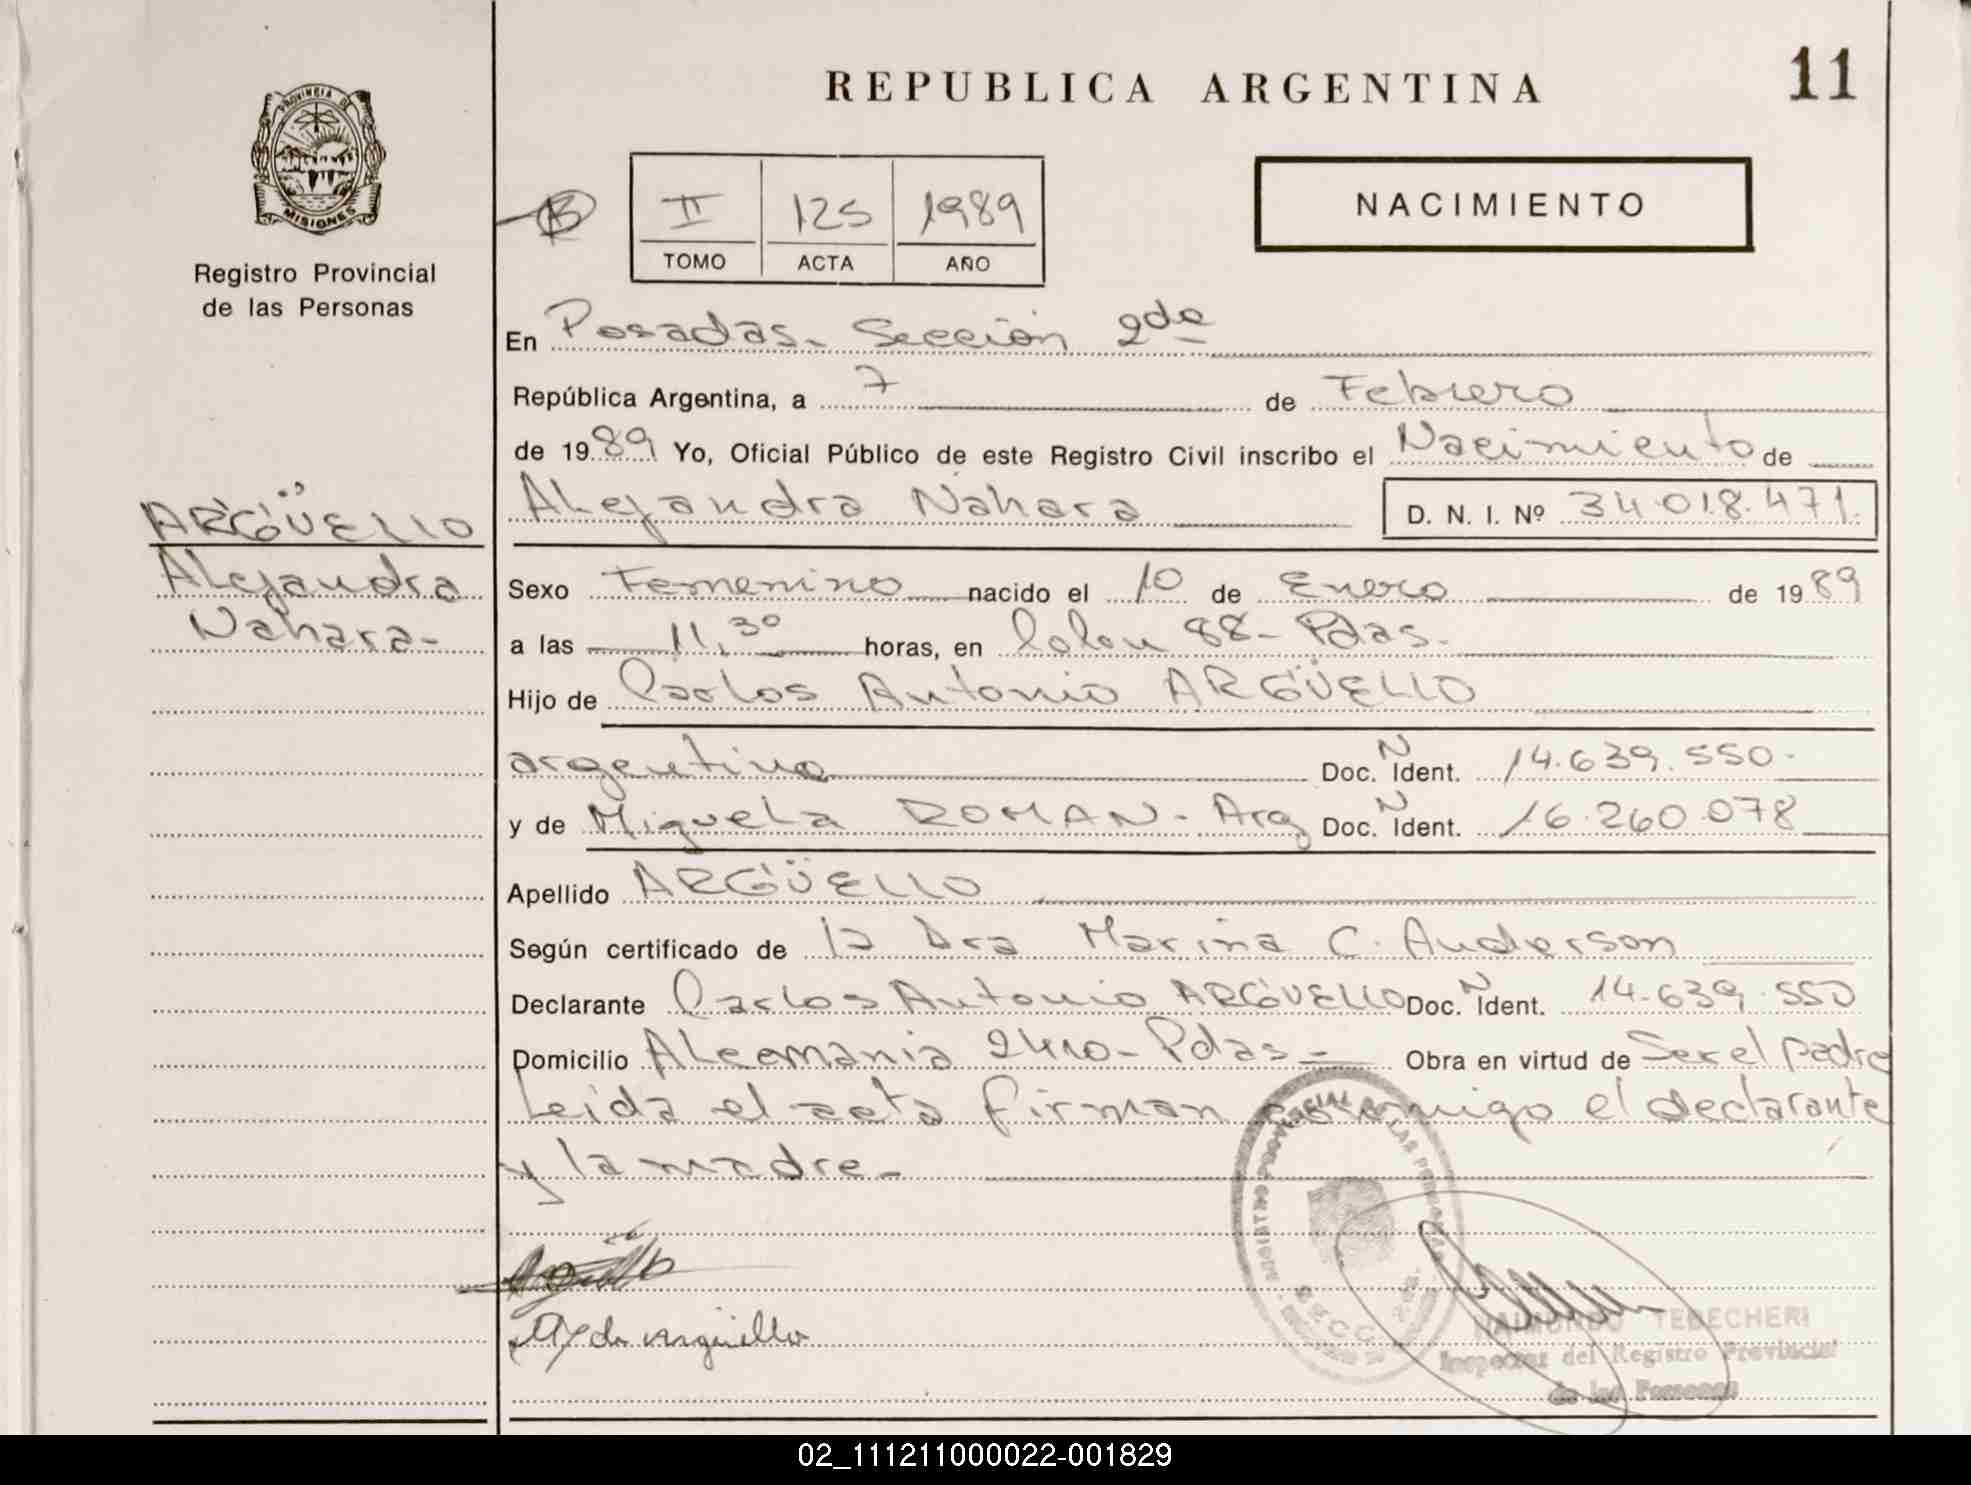 REPUBLICA ARGENTINA
11
PROVINCIA DE
MISIONES
Registro Provincial
de las Personas
II 125 1989
TOMO ACTA AÑO
NACIMIENTO
En Posadas. Sección 2da
República Argentina, a 7 de Febrero
de 1989 Yo, Oficial Público de este Registro Civil inscribo el Nacimiento de
Alejandra Nahara D. N. I. Nº 34.018.471.
ARGÜELLO
Alejandra
Nahara-
Sexo Femenino nacido el 10 de Enero de 1989
a las 11,30 horas, en Colon 88- Pdas.
Hijo de Carlos Antonio ARGÜELLO
argentino Doc. N Ident. 14.639.550.
y de Miguela ROMAN- Arg Doc. N Ident. 16.260.078
Apellido ARGÜELLO
Según certificado de la Dra Marina C. Anderson
Declarante Carlos Antonio ARGÜELLO Doc. N Ident. 14.639.550
Domicilio Aleemania 2410- Pdas- Obra en virtud de Ser el padre
Leida el acta firman conmigo el declarante
y la madre-
de Arguello
RAIMUNDO TEBECHERI
Inspector del Registro Provincial
de las Personas
02_111211000022-001829